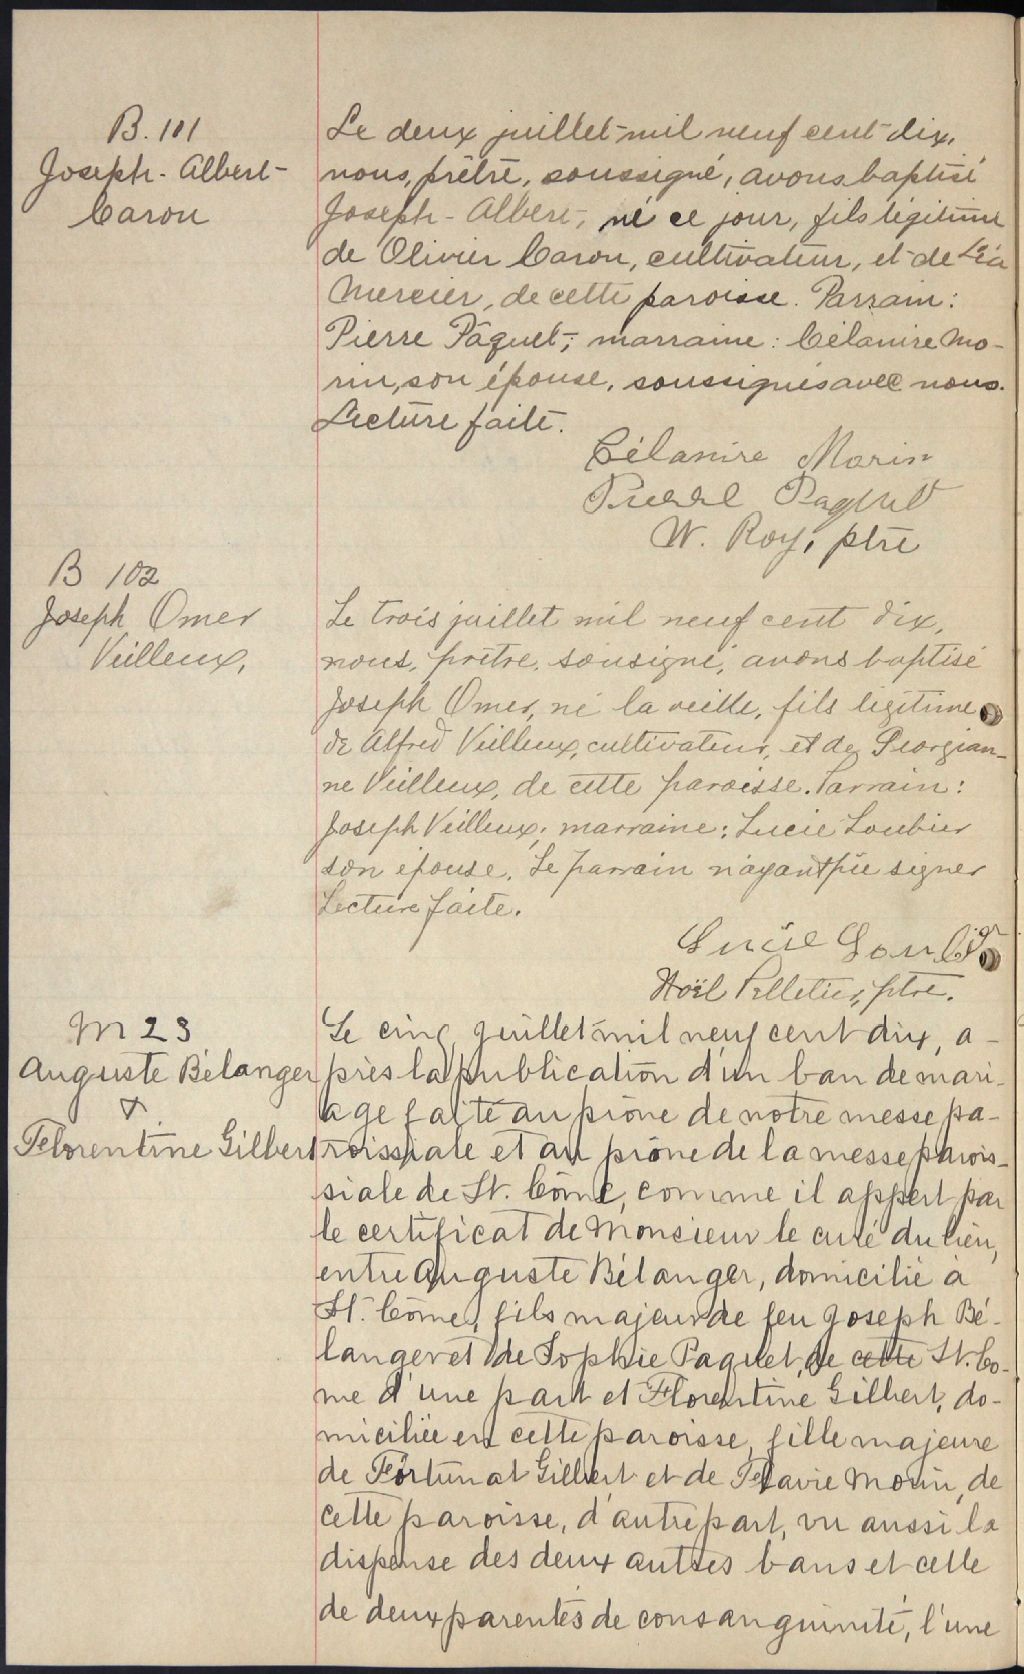 B. 101
Joseph-Albert-
Caron
Le deux juillet mil neuf cent dix,
nous, prêtre, soussigné, avons baptisé
Joseph-Albert, né ce jour, fils légitime
de Olivier Caron, cultivateur, et de Léa
Mercier, de cette paroisse. Parrain:
Pierre Pâquet; marraine: Célanire Mo-
rin, son épouse, soussignés avec nous.
Lecture faite.
Célanire Morin
Pierre Paquet
W. Roy, ptre
B 102
Joseph Omer
Veilleux,
Le trois juillet mil neuf cent dix,
nous, prêtre, sousigné, avons baptisé
Joseph Omer, né la veille, fils légitime
de Alfred Veilleux, cultivateur, et de Georgian-
ne Veilleux, de cette paroisse. Parrain:
Joseph Veilleux; marraine: Lucie Loubier
son épouse. Le parrain n'ayant pu signer
Lecture faite.
Lucie Loubier
Noël Pelletier, ptre.
M 23
Auguste Bélanger
&
Florentine Gilbert
Le cinq juillet mil neuf cent dix, a-
près la publication d'un ban de mari-
age faite au prône de notre messe pa-
roissiale et au prône de la messe parois-
siale de St. Côme, comme il appert par
le certificat de Monsieur le curé du lieu,
entre Auguste Bélanger, domicilié à
St. Côme, fils majeur de feu Joseph Bé-
langer et de Sophie Paquet, de cette St. Cô-
me d'une part et Florentine Gilbert, do-
miciliée en cette paroisse, fille majeure
de Fortunat Gilbert et de Flavie Morin, de
cette paroisse, d'autre part, vu aussi la
dispense des deux autres bans et celle
de deux parentés de consanguinité, l'une